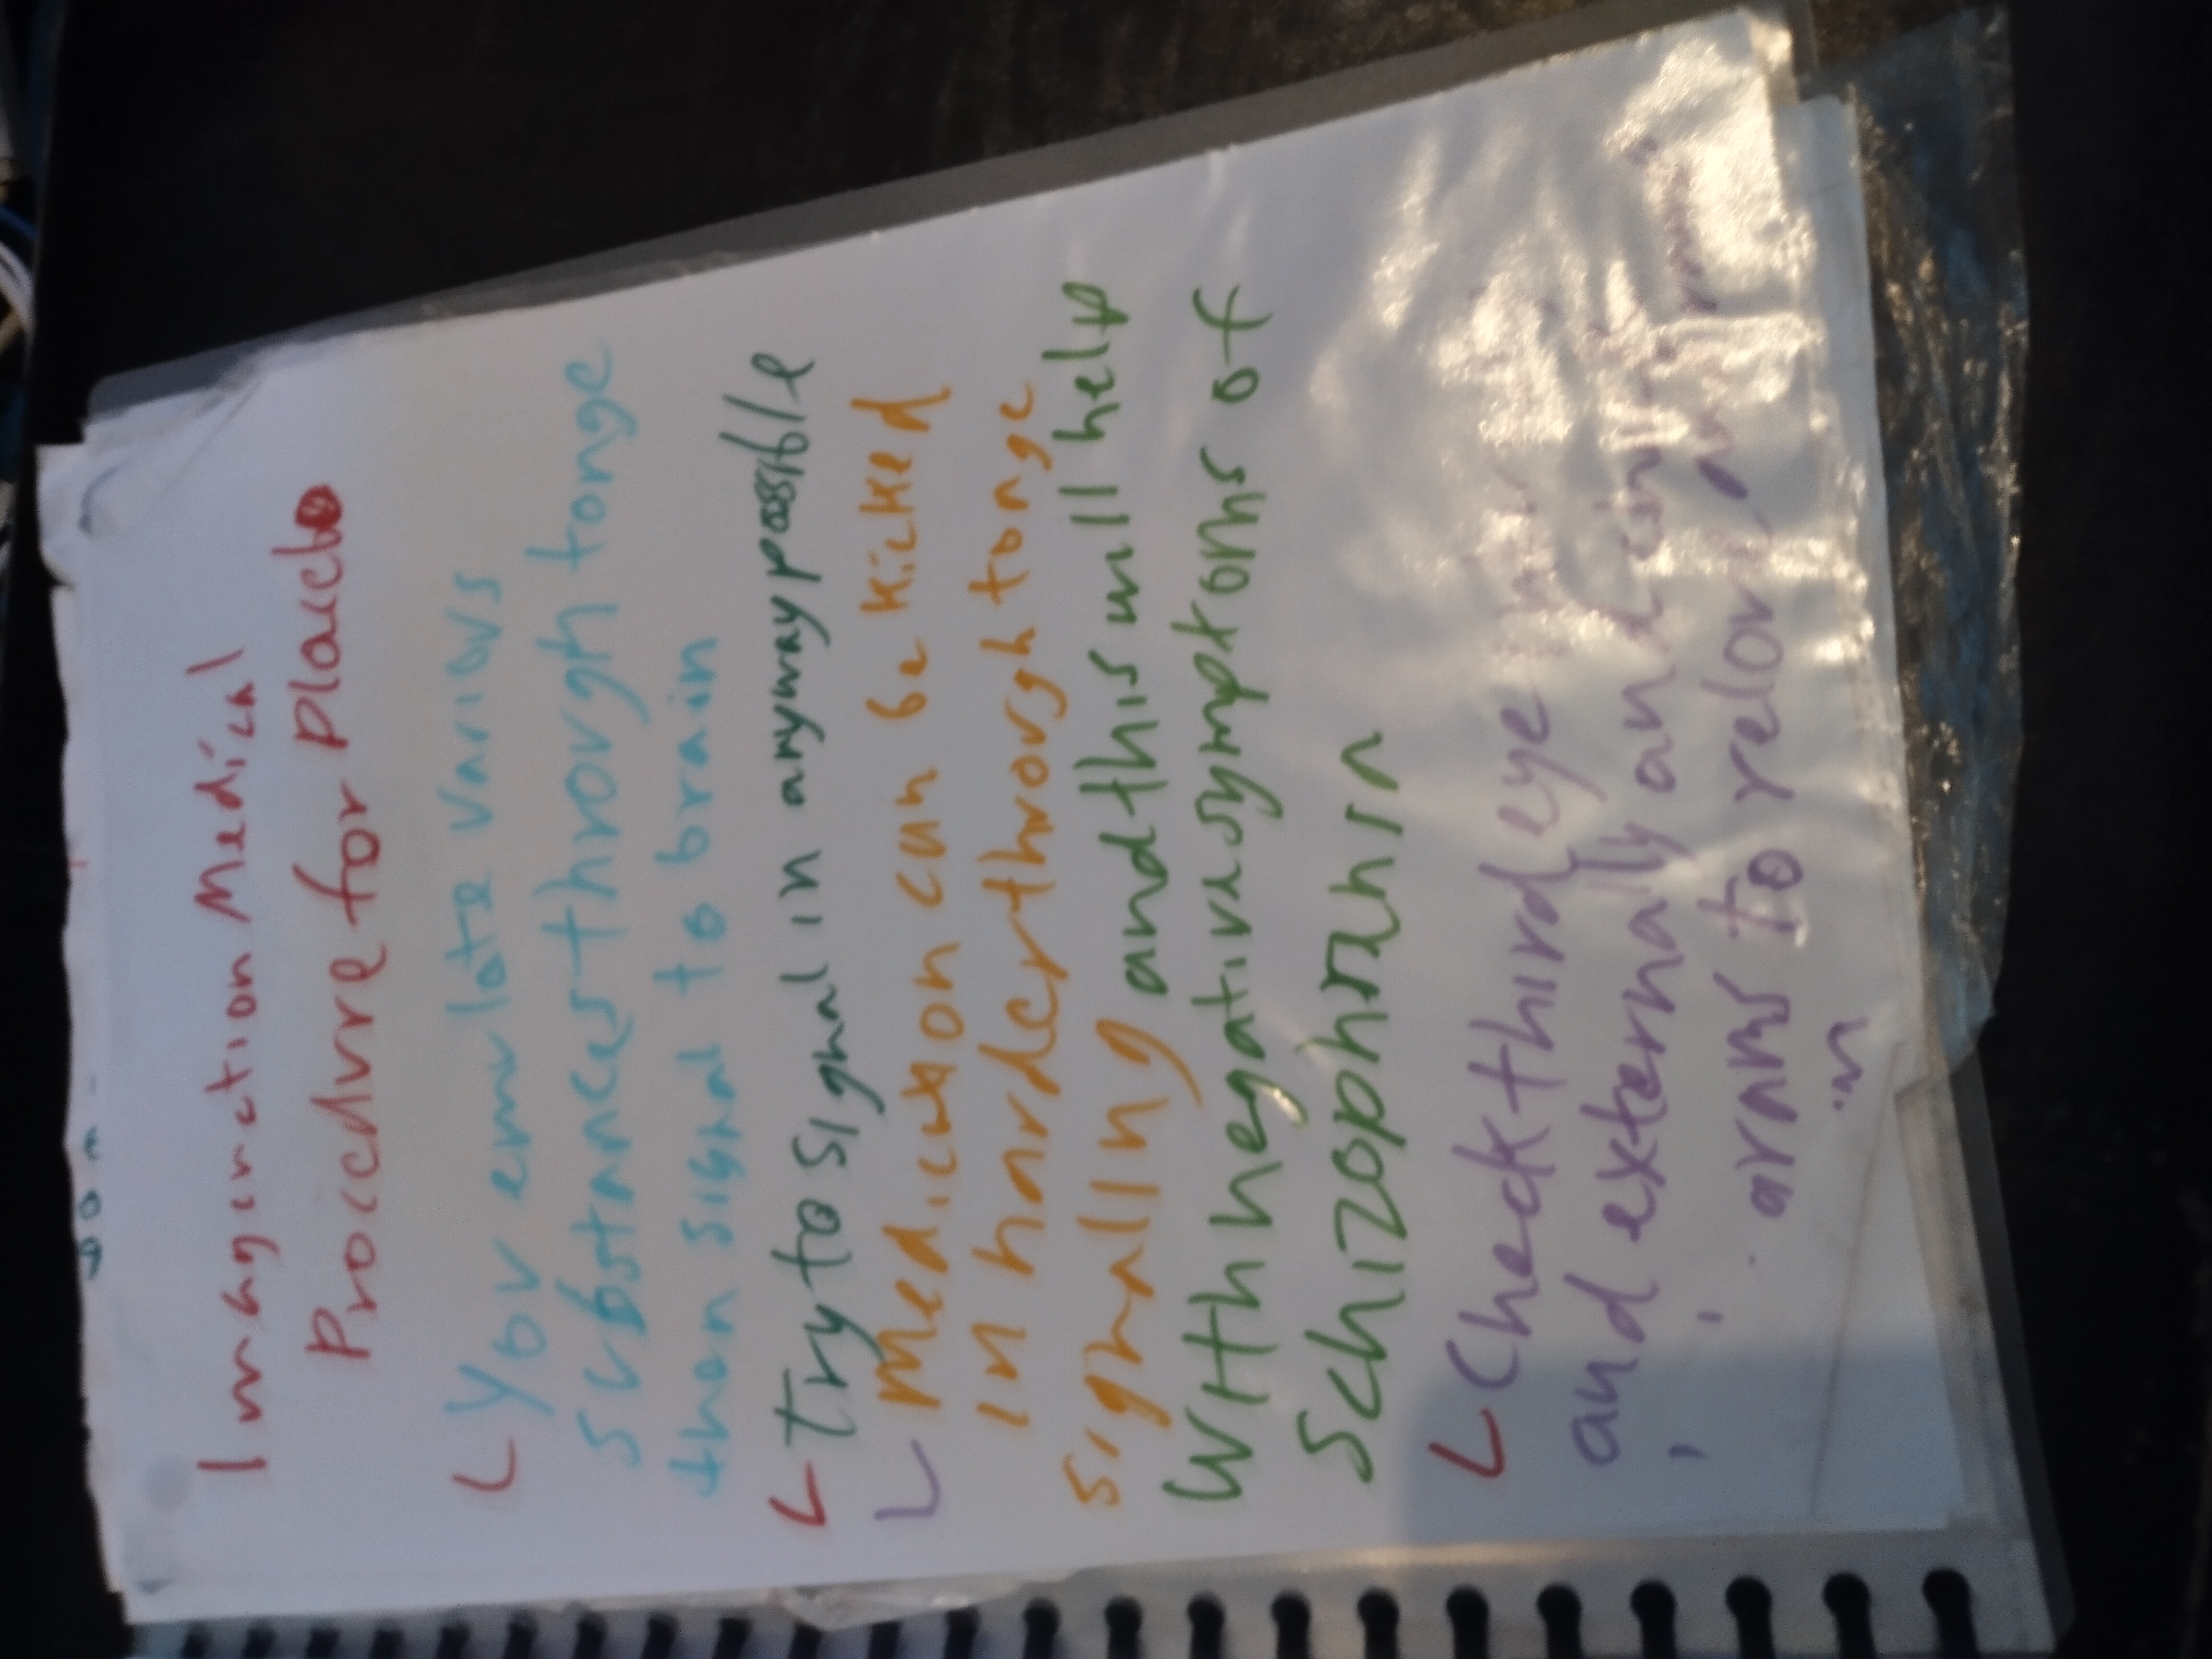 Imagenction Medical
Procedure for placebo
You emulate various
substances through tonge
then signal to brain
try to signal in anyway possible
Medicution can be kicked
in harder through tonge
signalling and this will help
with negative symptoms of
schizophrehia
Check third eye
and externally and
arms to
in